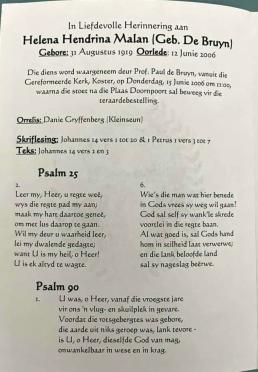 In Liefdevolle Herinnering aan
Helena Hendrina Malan (Geb. De Bruyn)
Gebore: 31 Augustus 1919 Oorlede: 12 Junie 2006
Die diens word waargeneem deur Prof. Paul de Bruyn, vanuit die
Gereformeerde Kerk, Koster, op Donderdag, 15 Junie 2006 om 11:00,
waarna die stoet na die Plaas Doornpoort sal beweeg vir die
teraardebestelling.
Orrelis: Danie Gryffenberg (Kleinseun)
Skriflesing: Johannes 14 vers 1 tot 20 & 1 Petrus 1 vers 3 tot 7
Teks: Johannes 14 vers 2 en 3
Psalm 25
2.
Leer my, Heer, u regte weë,
wys die regte pad my aan;
maak my hart daartoe geneë,
om met lus daarop te gaan.
Wil my deur u waarheid leer,
lei my dwalende gedagte;
want U is my heil, o Heer!
U is ek altyd te wagte.
6.
Wie's die man wat hier benede
in Gods vrees sy weg wil gaan!
God sal self sy wank'le skrede
voortlei in die regte baan.
Al wat goed is, sal Gods hand
hom in stilheid laat verwerwe;
en die lank beloofde land
sal sy nageslag beërwe.
Psalm 90
1.
U was, o Heer, vanaf die vroegste jare
vir ons 'n vlug- en skuilplek in gevare.
Voordat die rotsgebergtes was gebore,
die aarde uit niks geroep was, lank tevore -
is U, o Heer, dieselfde God van mag,
onwankelbaar in wese en in krag.